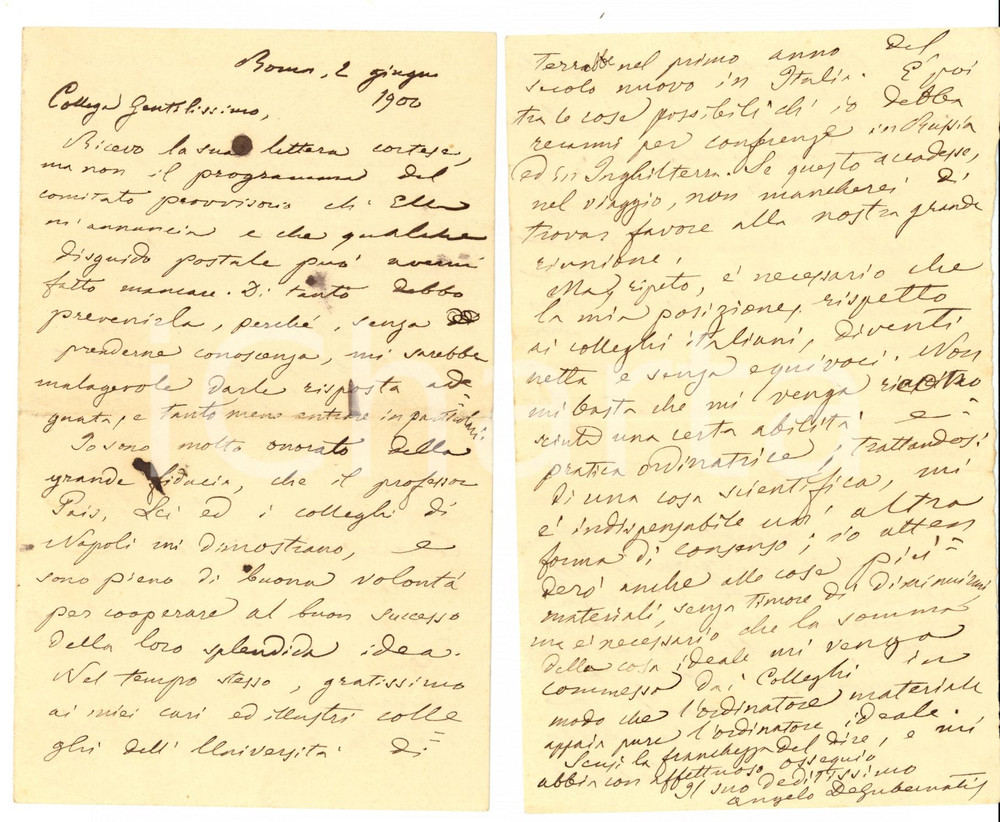 Roma, 2 giugno
1900
Collega Gentilissimo,
Ricevo la sua lettera cortese,
ma non il programma del
comitato provvisorio ch' Ella
m'annuncia e che qualche
disguido postale può avermi
fatto mancare. Di tanto debbo
prevenirla, perché, senza
prenderne conoscenza, mi sarebbe
malagevole darle risposta ade=
guata, e tanto meno entrare in particolari.
Io sono molto onorato della
grande fiducia, che il professor
Pais, Lei ed i colleghi di
Napoli mi dimostrano, e
sono pieno di buona volontà
per cooperare al buon successo
della loro splendida idea.
Nel tempo stesso, gratissimo
ai miei cari ed illustri colle=
ghi dell' Università di
nel primo anno del
secolo nuovo in Italia. E' poi
tra le cose possibili ch' io debba
recarmi per conferenze in Russia
ed in Inghilterra. Se questo accadesse,
nel viaggio, non mancherei di
trovar favore alla nostra grande
riunione.
Ma, ripeto, è necessario che
la mia posizione, rispetto
ai colleghi italiani, diventi
netta e senza equivoci. Non
mi basta che mi venga ricono=
sciuta una certa abilità e
pratica ordinatrice; trattandosi
di una cosa scientifica, mi
è indispensabile un' altra
forma di consenso; io atten=
derò anche alle cose più
materiali, senza timore di diminuirmi
ma è necessario che la somma
della cosa ideale mi venga
commessa dai Colleghi in
modo che l'ordinatore materiale
appaia pure l'ordinatore ideale.
Scusi la franchezza del dire, e mi
abbia con affettuoso ossequio
Il suo deditissimo
Angelo DeGubernatis
iCharta